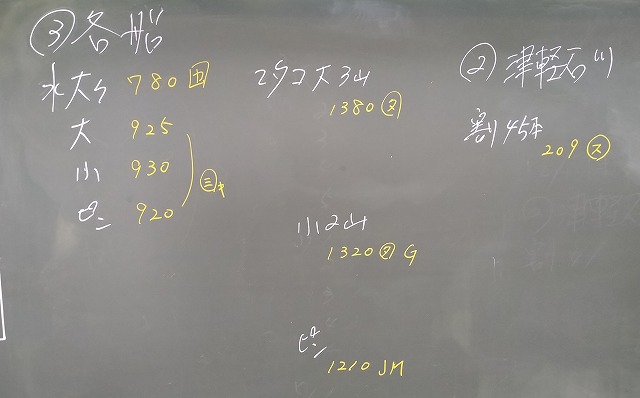 ③各船
水大々 780 田
大 925
小 930
ピン 920
三キ
マダコ大3山
1380 ヌ
小2山
1320 ヌ G
ピン
1210 JM
②津軽石川
割 45本
209 ス